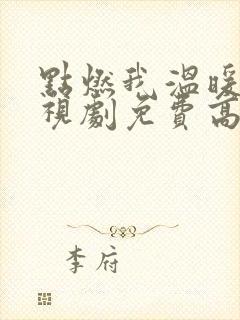 點燃我,溫暖
視劇免費高
李府